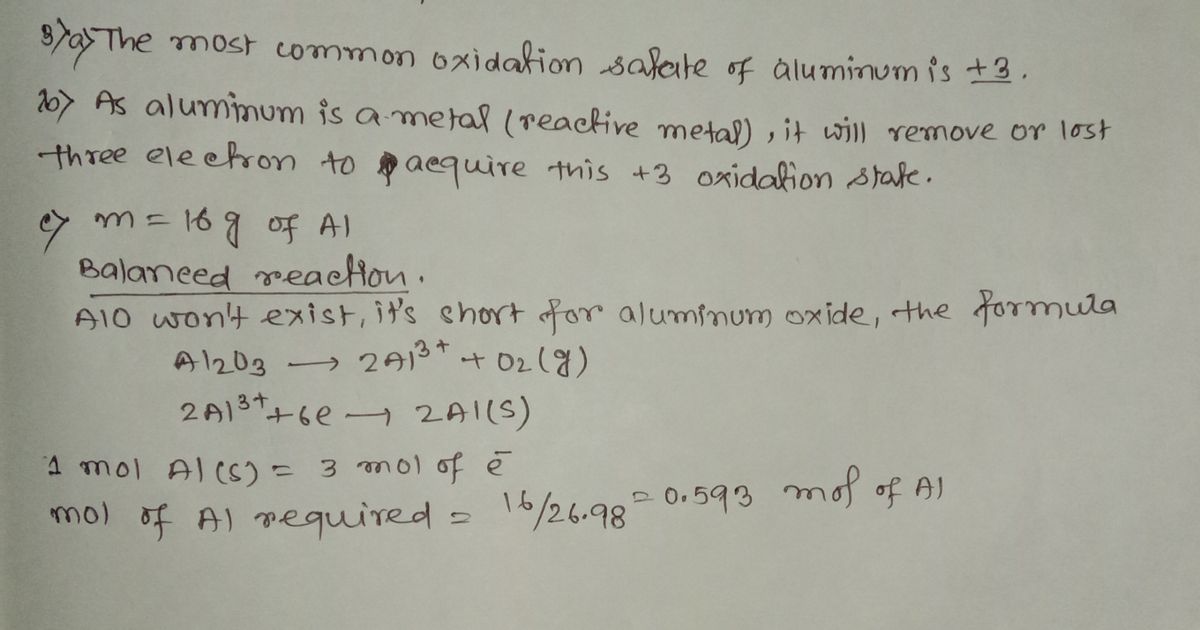 3)a) The most common oxidation satate of aluminum is +3.
b) As aluminum is a metal (reactive metal), it will remove or lost
three electron to acquire this +3 oxidation state.
c) m = 16 g of Al
Balanced reaction.
AlO won't exist, it's short for aluminum oxide, the formula
Al2O3 → 2Al³⁺ + O2(g)
2Al³⁺ + 6e → 2Al(s)
1 mol Al(s) = 3 mol of ē
mol of Al required = 16/26.98 = 0.593 mol of Al